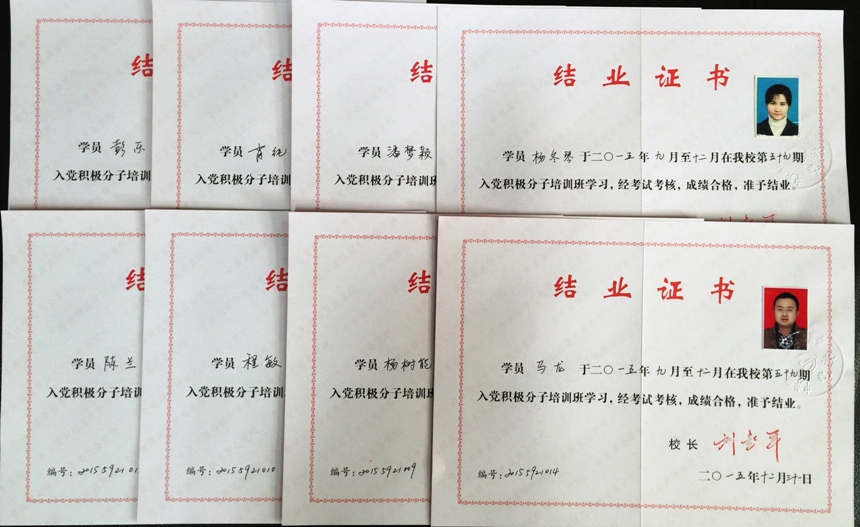 结
学员 彭乐
入党积极分子培训
结
学员 肖纯
入党积极分子培训
结
学员 潘梦颖
入党积极分子培训班
结业证书
学员 杨冬琴 于二〇一五年九月至十二月在我校第五十九期
入党积极分子培训班学习，经考试考核，成绩合格，准予结业。
结
学员 陈兰
入党积极分子培训
编号：2015592101
结
学员 程敏
入党积极分子培训
编号：20155921010
结
学员 杨树能
入党积极分子培训班
编号：20155921009
结业证书
学员 马龙 于二〇一五年九月至十二月在我校第五十九期
入党积极分子培训班学习，经考试考核，成绩合格，准予结业。
校长
编号：20155921014
二〇一五年十二月三十一日